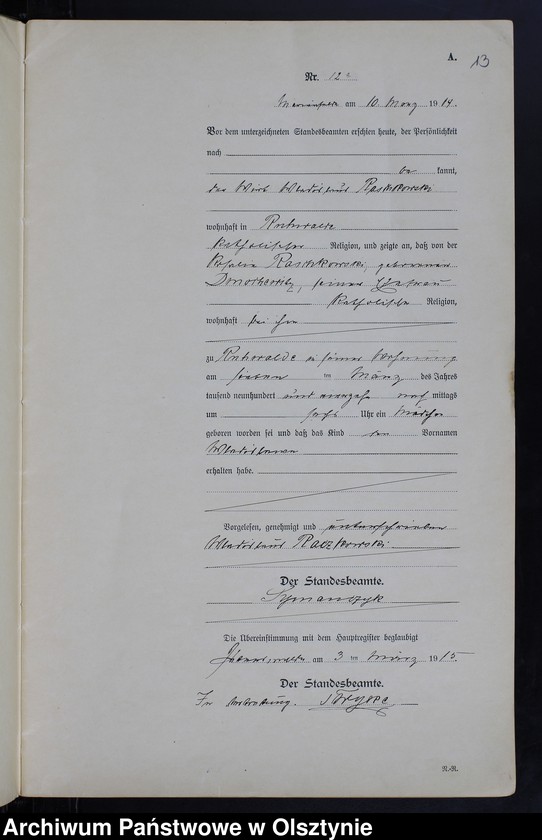 A.
13
Nr. 12
am 10. März 1914.
Vor dem unterzeichneten Standesbeamten erschien heute, der Persönlichkeit
nach
be kannt,
der Wirt Wladislaus Raschkowski
wohnhaft in
katholischer Religion, und zeigte an, daß von der
Raschkowski, geborenen
seiner Ehefrau
katholischer Religion,
wohnhaft bei ihm
zu in seiner Wohnung
am sieben ten März des Jahres
tausend neunhundert und vierzehn nach mittags
um sechs Uhr ein Mädchen
geboren worden sei und daß das Kind den Vornamen
Wladislawa
erhalten habe.
Vorgelesen, genehmigt und unterschrieben
Wladislaus Raczkowski
Der Standesbeamte.
Symanczyk
Die Übereinstimmung mit dem Hauptregister beglaubigt
am 3 ten März 1915.
Der Standesbeamte.
In Vertretung.
R.-R.
Archiwum Państwowe w Olsztynie